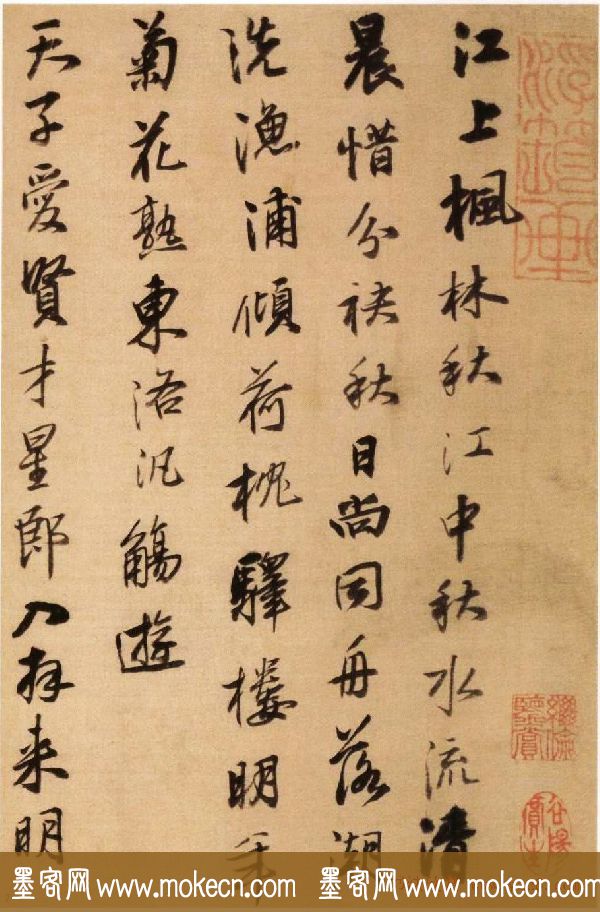 江上楓林秋江中秋水流清
晨惜分袂秋日尚同舟落潮
洗漁浦傾荷枕驛樓明年
菊花熟東洛汎觴遊
天子愛賢才星郎入拜来明
墨客网 www.mokecn.com 墨客网 www.mokecn.com